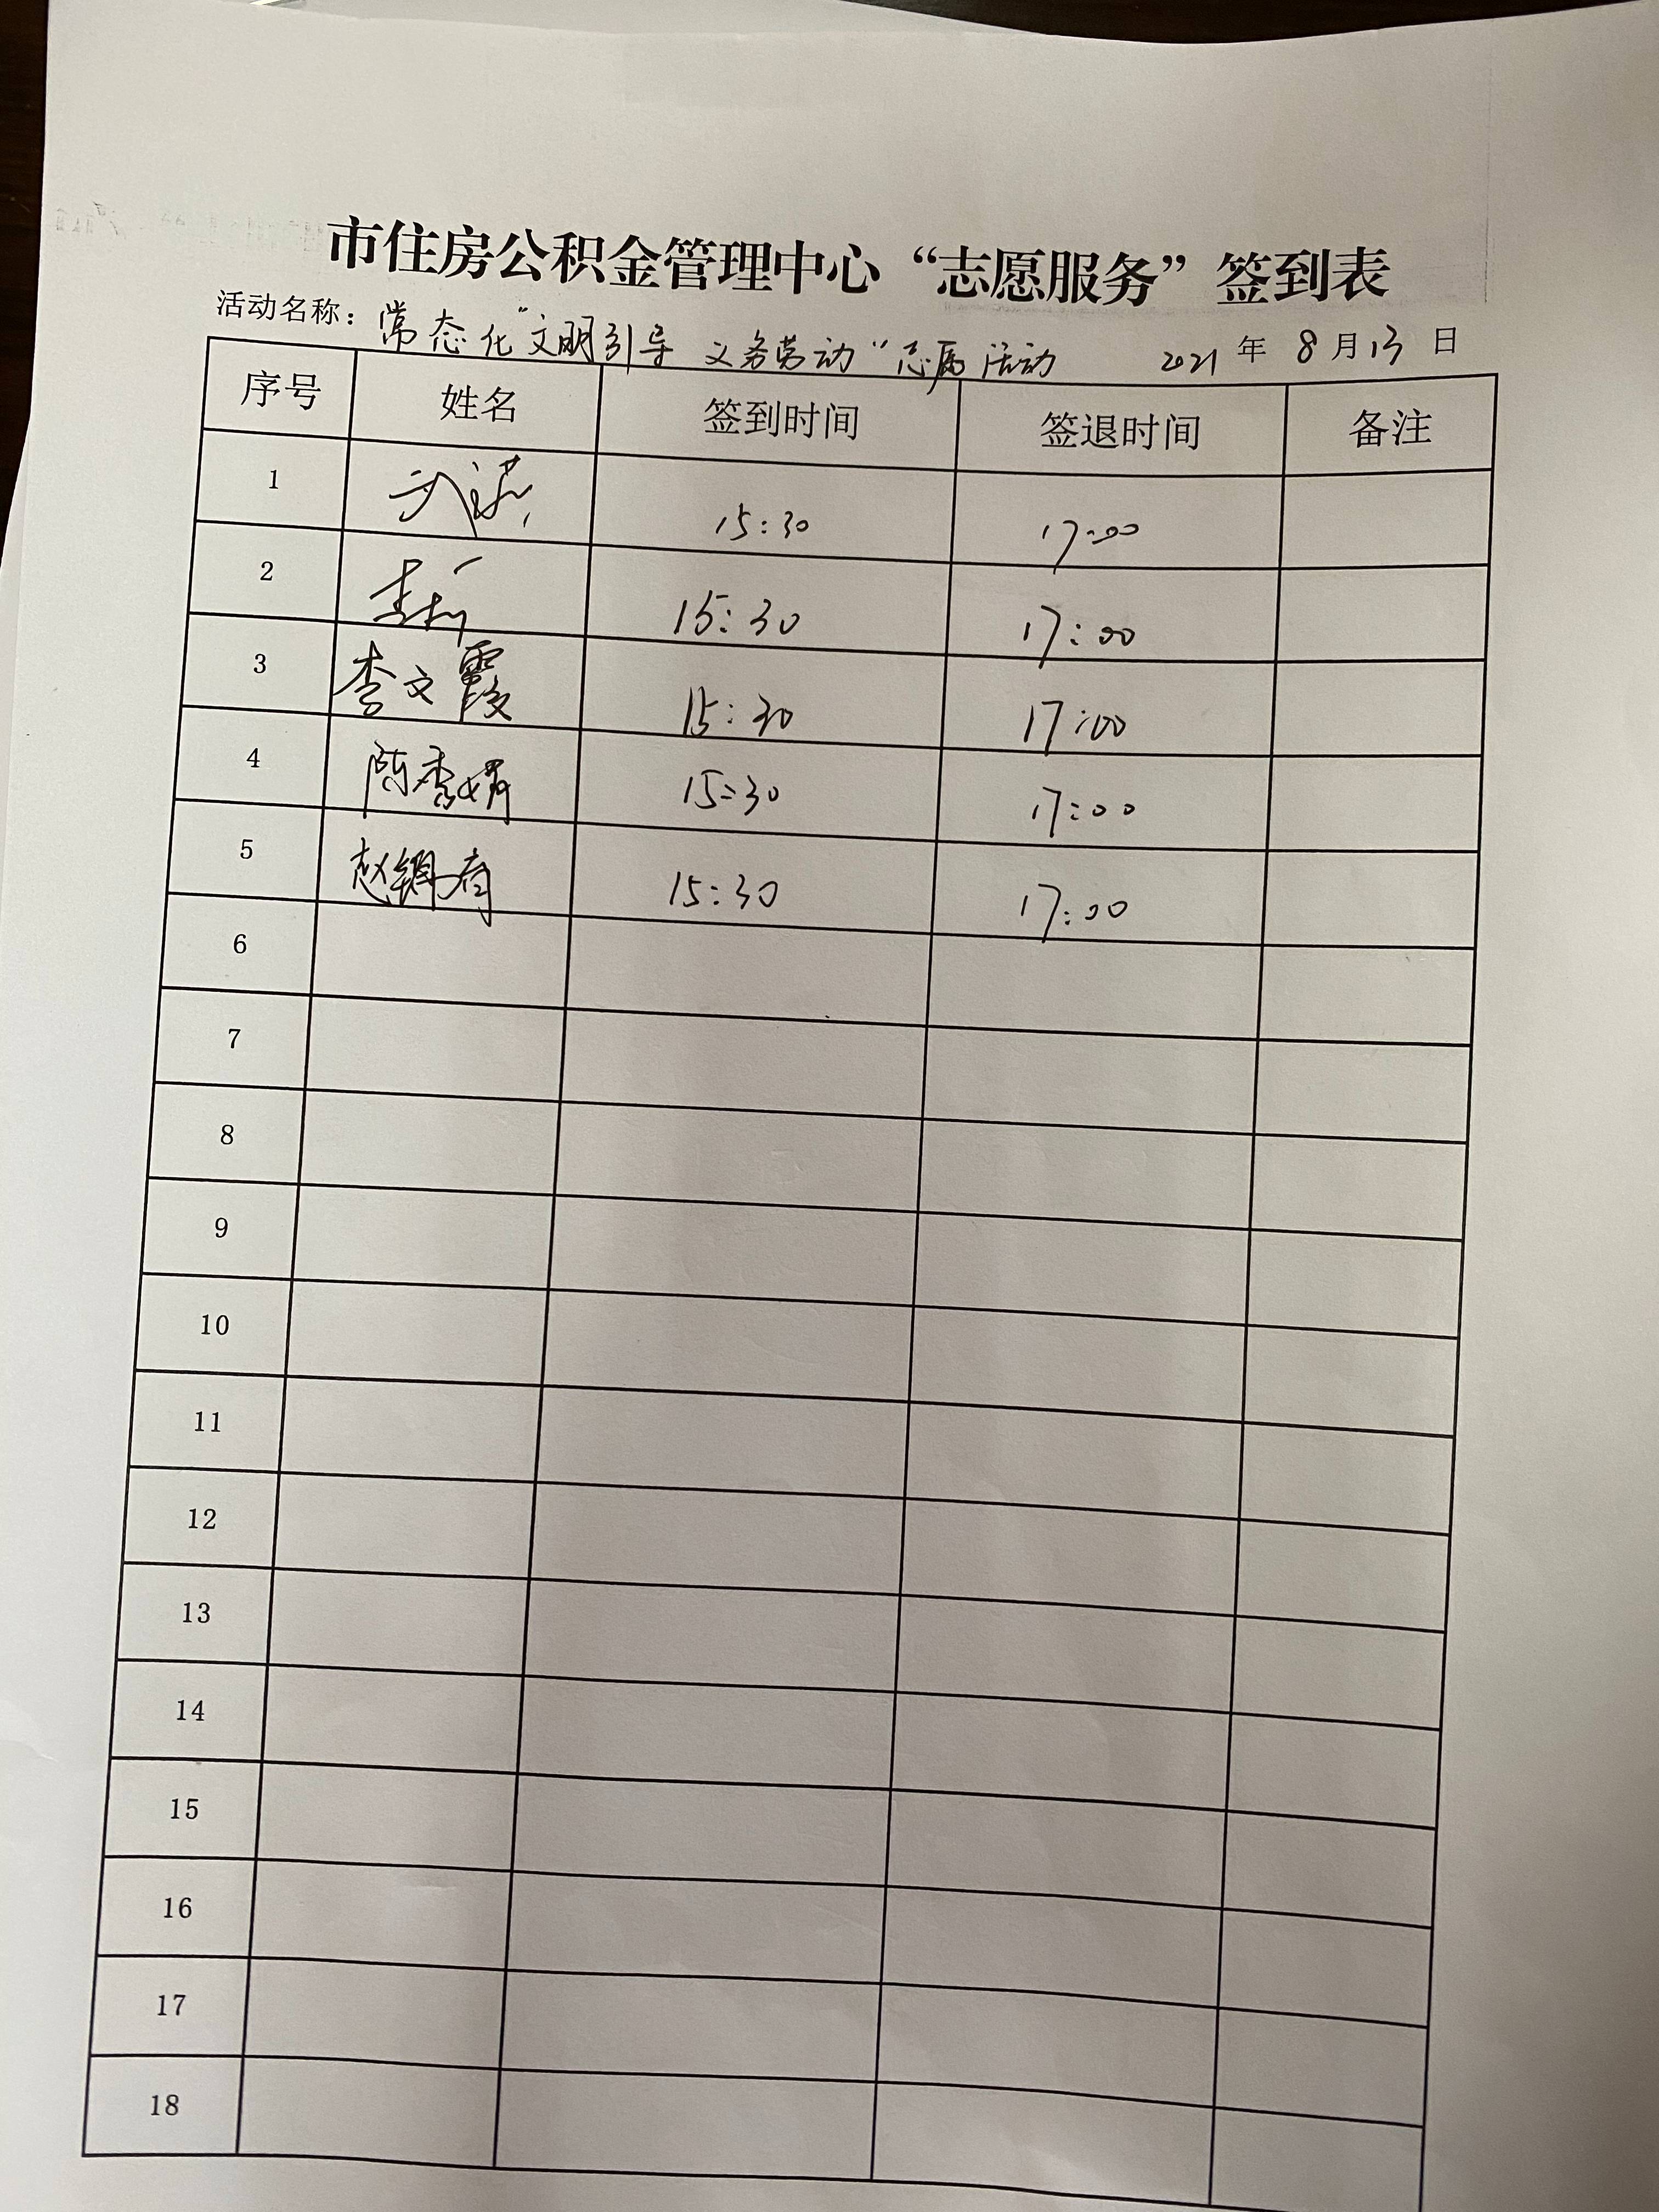 市住房公积金管理中心“志愿服务”签到表
活动名称：常态化“文明引导 义务劳动”志愿活动 2021年8月13日
序号 姓名 签到时间 签退时间 备注
1 15:30 17:00
2 15:30 17:00
3 李文霞 15:30 17:00
4 陈秀娟 15:30 17:00
5 赵 15:30 17:00
6
7
8
9
10
11
12
13
14
15
16
17
18